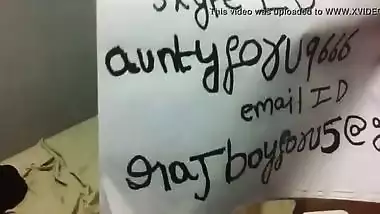 This video was uploaded to WWW.XVIDEO
auntyforu9666
email ID
rajboyforu5@g